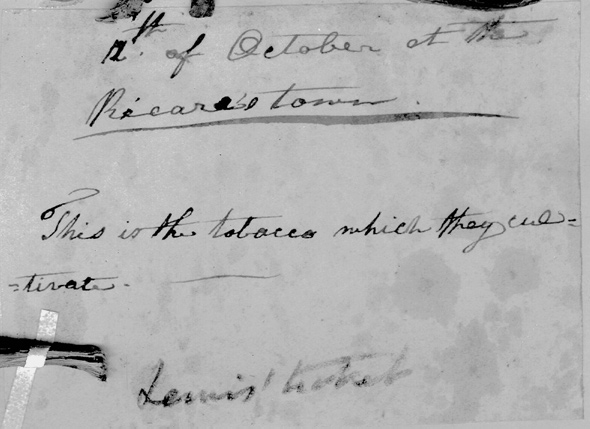 12th. of October at the
Ricaras town.
This is the tobacco which they cul=
=tivate.
Lewis' ticket